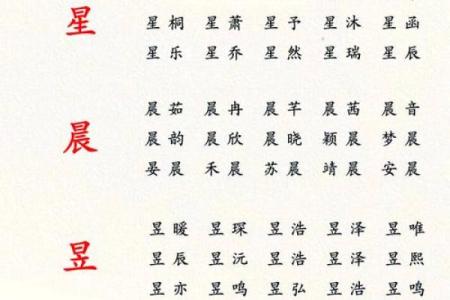 星
星桐 星萧 星予 星沐 星函
星乐 星乔 星然 星瑞 星辰
晨
晨茹 晨冉 晨芊 晨茜 晨音
晨韵 晨欣 晨晓 颖晨 梦晨
晏晨 禾晨 苏晨 靖晨 安晨
昱
昱暖 昱琛 昱浩 昱泽 昱唯
昱辰 昱沅 昱浩 昱泽 昱熙
昱亦 昱鸣 昱弘 昱浩 昱鸣